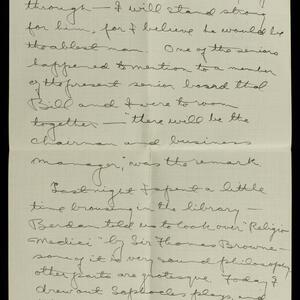 through — I will stand strong
for him, for I believe he would be
the ablest man One of the seniors
happened to mention to a member
of the present senior board that
Bill and I were to room
together — "there will be the
chairman and business
manager," was the remark
Last night I spent a little
time browsing in the library —
Berdan told us to look over "Religio
Medici" by Sir Thomas Browne —
some it is very sound philosophy
other parts are grotesque. Today I
drew out Sophocles plays and